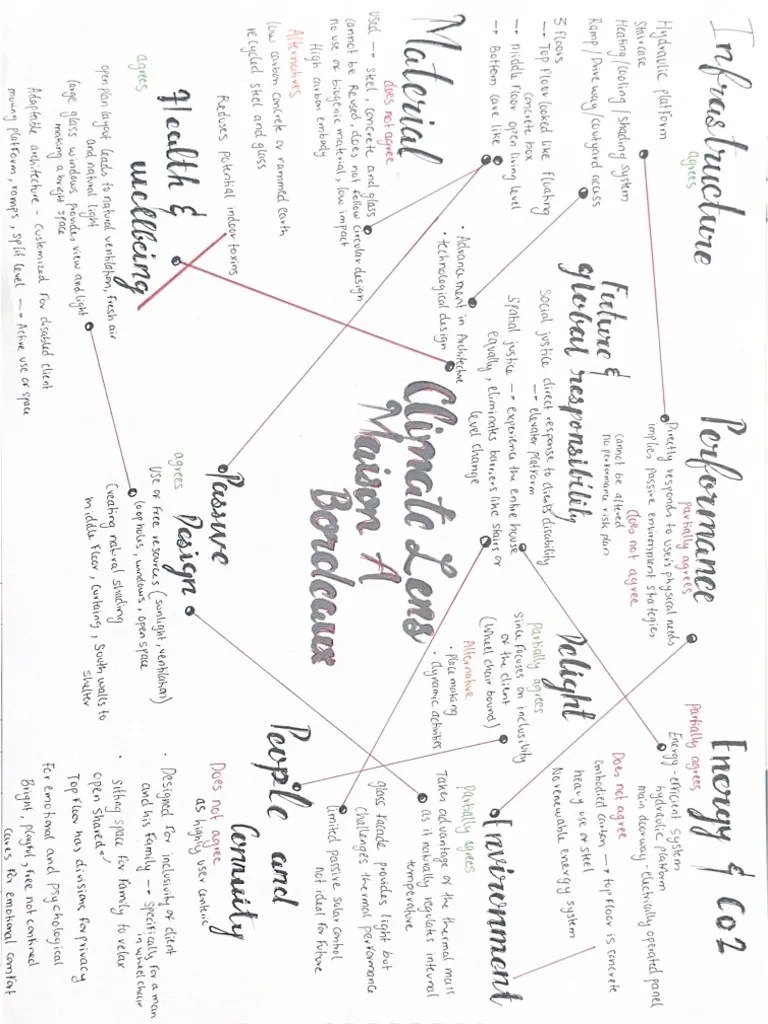 Infrastructure
agrees
Hydraulic platform
Staircase
Heating/cooling/shading system
Ramp/Drive way/courtyard access
3 floors
→ Top floor looked like floating
concrete box
→ middle floor open living level
→ Bottom cave like
Performance
partially agrees
Directly responds to users physical needs
implies passive environment strategies
does not agree
cannot be altered
no performance risk plan
Energy & Co2
partially agrees
Energy-efficient system
hydraulic platform
main doorway-electrically operated panel
Does not agree
Embodied carbon → top floor is concrete
heavy use of steel
No renewable energy system
Future &
global responsibility
Social justice direct response to clients disability
→ elevator platform
Spatial justice → experience the entire house
equally, eliminates barriers like stairs or
level change
• Advancement in Architectire
• technological design
Delight
partially agrees
since focuses on inclusibility
of the client
(Wheel chair bound)
Alternative
• Place making
• dynamic activities
Material
does not agree
used → steel, concrete and glass
cannot be Reused, does not follow circular design
no use of biogenic material, low impact
High carbon embody
Alternatives
low carbon concrete or rammed earth
recycled steel and glass
Climate Lens
Maison A
Bordeaux
Environment
partially agrees
Takes advantage of the thermal mass
as it naturally regulates internal
temperature
glass facade provides light but
challenges thermal performance
limited passive solar control
not ideal for future
Health &
wellbeing
Reduces potential indoor toxins
agrees
open plan layout leads to natural ventilation, fresh air
and natural light
large glass windows provides view and light
making a bright space
Adaptable architecture - customized for disabled client
moving platform, ramps, split level → Active use of space
Passive
Design
agrees
Use of free resources (sunlight, ventilation)
loopholes, windows, open space
Creating natural shading
middle floor, curtains, south walls to
shelter
People and
Comnuity
Does not agree
as highly user centeric
• Designed for inclusivity of client
and his family → specifically for a man
in wheel chair
• sitting space for family to relax
open shared
Top floor has divisions for privacy
For emotional and psychological
Bright, playful, free not confined
cares for emotional comfort